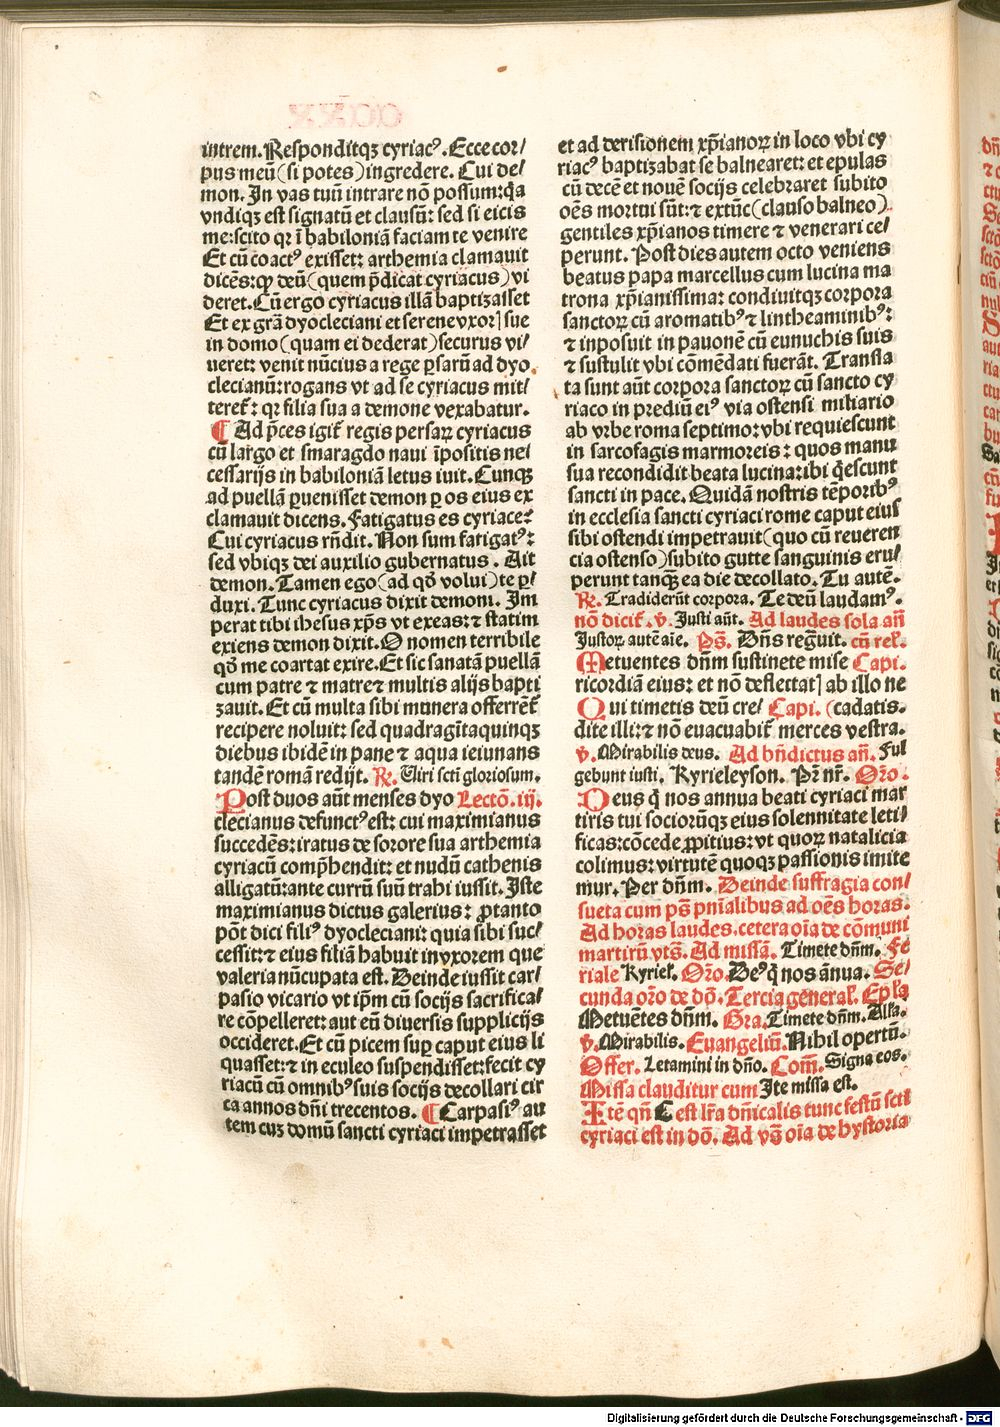 intrem. Responditqꝫ cyriacꝰ. Ecce cor/
pus meū (si potes) ingredere. Cui de/
mon. In vas tuū intrare nō possum: qa
vndiqꝫ est signatū et clausū: sed si eicis
me: scito qꝛ ī babiloniā faciam te venire
Et cū coactꝰ exisset: arthemia clamauit
dicēs: ꝙ deū (quem p̄dicat cyriacus) vi
deret. Cū ergo cyriacus illā baptizasset
Et ex grā dyocleciani et serene vxorꝭ sue
in domo (quam ei dederat) securus vi/
ueret: venit nūcius a rege ꝑsarū ad dyo
clecianū: rogans vt ad se cyriacus mit/
teret᷑: qꝛ filia sua a demone vexabatur.
¶ Ad p̄ces igit᷑ regis persaꝝ cyriacus
cū largo et smaragdo naui īpositis ne/
cessarijs in babiloniā letus iuit. Cunqꝫ
ad puellā ꝑuenisset demon ꝑ os eius ex
clamauit dicens. Fatigatus es cyriace?
Cui cyriacus rn̄dit. Non sum fatigatꝰ:
sed vbiqꝫ dei auxilio gubernatus. Ait
demon. Tamen ego (ad qd̄ volui) te ꝑ/
duxi. Tunc cyriacus dixit demoni. Im
perat tibi ihesus xp̄s vt exeas: ⁊ statim
exiens demon dixit. O nomen terribile
qd̄ me coartat exire. Et sic sanatā puellā
cum patre ⁊ matre ⁊ multis alijs bapti
zauit. Et cū multa sibi munera offerrēt᷑
recipere noluit: sed quadragītaquinqꝫ
diebus ibidē in pane ⁊ aqua ieiunans
tandē romā redijt. ℟. Uiri sctī gloriosum.
Post duos aūt menses dyo Lectō. iij.
clecianus defunctꝰ est: cui maximianus
succedēs: iratus de sorore sua arthemia
cyriacū comp̄hendit: et nudū cathenis
alligatū: ante currū suū trahi iussit. Iste
maximianus dictus galerius: ꝓtanto
pōt dici filiꝰ dyocleciani: quia sibi suc/
cessit: ⁊ eius filiā habuit in vxorem que
valeria nūcupata est. Deinde iussit car/
pasio vicario vt ip̄m cū socijs sacrifica/
re cōpelleret: aut eū diuersis supplicijs
occideret. Et cū picem suꝑ caput eius li
quasset: ⁊ in eculeo suspendisset: fecit cy
riacū cum omnibꝰ suis socijs decollari cir
ca annos dn̄i trecentos. ¶ Carpasiꝰ au
tem cuꝫ domū sancti cyriaci impetrasset
et ad derisionem xp̄ianoꝝ in loco vbi cy
riacꝰ baptizabat se balnearet: et epulas
cū decē et nouē socijs celebraret subito
oēs mortui sūt: ⁊ extūc (clauso balneo)
gentiles xp̄ianos timere ⁊ venerari ce/
perunt. Post dies autem octo veniens
beatus papa marcellus cum lucina ma
trona xp̄ianissima: condiuitqꝫ corpora
sanctoꝝ cū aromatibꝰ ⁊ lintheaminibꝰ:
⁊ inposuit in pauonē cū eunuchis suis
⁊ sustulit vbi cōmēdati fuerāt. Transla
ta sunt aūt corpora sanctoꝝ cū sancto cy
riaco in prediū eiꝰ via ostensi miliario
ab vrbe roma septimo: vbi requiescunt
in sarcofagis marmoreis: quos manu
sua recondidit beata lucina: ibi q̄escunt
sancti in pace. Quidā nostris tēporibꝰ
in ecclesia sancti cyriaci rome caput eius
sibi ostendi impetrauit (quo cū reueren
cia ostenso) subito gutte sanguinis eru/
perunt tanqꝫ ea die decollato. Tu autē.
℟. Tradiderūt corpora. Te deū laudamꝰ.
nō dicit᷑. ℣. Justi aūt. Ad laudes sola añ
Justoꝝ autē aīe. Ps̄. Dn̄s regͣuit. cū rel᷑.
Metuentes dn̄m sustinete mise Capi.
ricordiā eius: et nō deflectatꝭ ab illo ne
Qui timetis deū cre/ Capi. (cadatis.
dite illi: ⁊ nō euacuabit᷑ merces vestra.
℣. Mirabilis deus. Ad bn̄dictus añ. Ful
gebunt iusti. Kyrieleyson. Pr̄ nr̄. Orō.
Deus q̄ nos annua beati cyriaci mar
tiris tui sociorūqꝫ eius solennitate leti/
ficas: cōcede ꝓpitius: vt quoꝝ natalicia
colimus: virtutē quoqꝫ passionis imite
mur. Per dn̄m. Deinde suffragia con/
sueta cum ps̄ pn̄ialibus ad oēs horas.
Ad horas laudes. cetera oīa de cōmuni
martirū vts̄. Ad missā. Timete dn̄m. Fe
riale Kyriel᷑. Orō. Deꝰ q̄ nos ānua. Se/
cunda orō de dō. Tercia gēneral᷑. Ep̄la
Metuētes dn̄m. Gra. Timete dn̄m. Alła.
℣. Mirabilis. Euangeliū. Nihil opertū.
Offer. Letamini in dn̄o. Com̄. Signa eos.
Missa clauditur cum Ite missa est.
Itē qn̄ C est lr̄a dn̄icalis tunc festū scti
cyriaci est in dō. Ad vs̄ oīa de hystoria